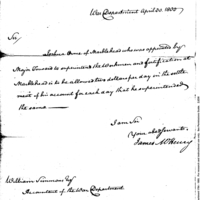 War Department April 30. 1800
Sir,
Joshua Orne of Marblehead who was appointed by
Major Toussard to superintend the Workmen and fortifications at
Marblehead is to be allowed two dollars per day in the settle-
ment of his account for each day that he superintended
the same —
I am Sir
Your obed servant
James McHenry
William Simmons Esqr
Accountant of the War Department